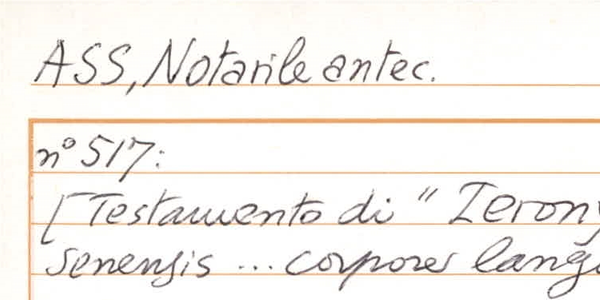 ASS, Notarile antec.
n° 517:
[Testamento di "Ierony
Senensis ... corpores langu